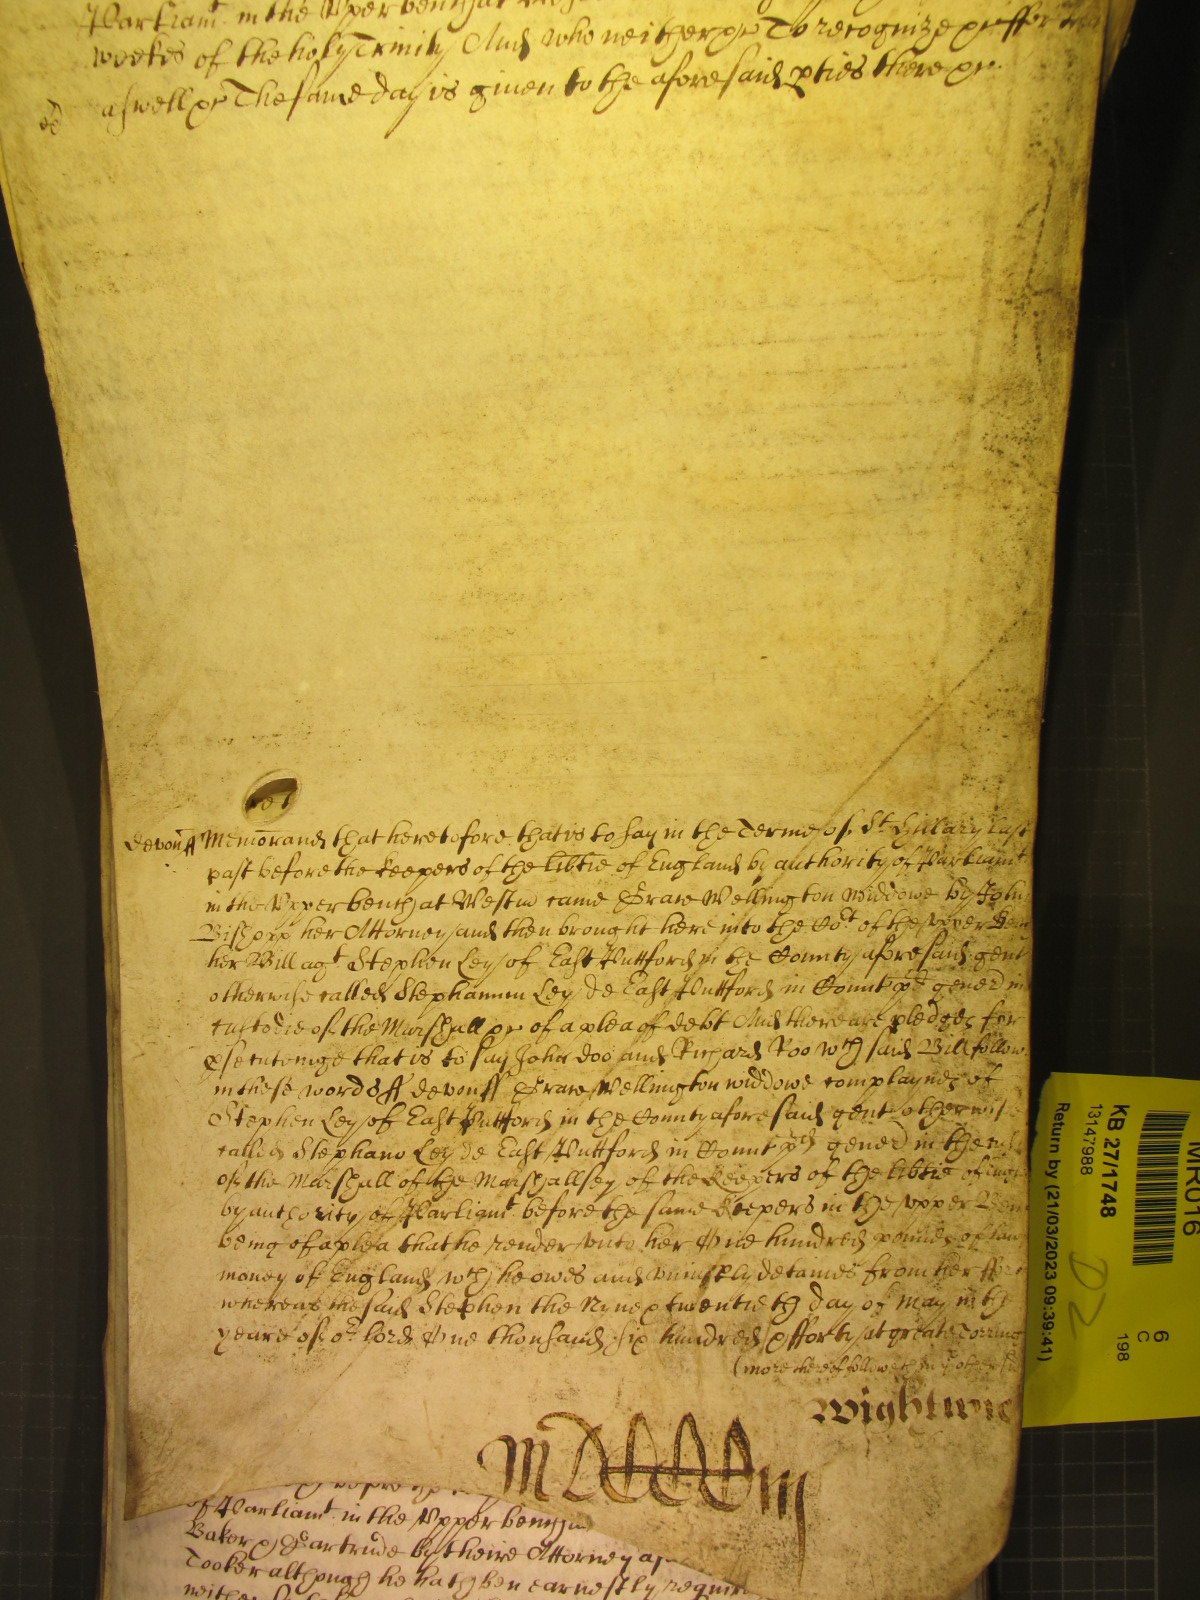 Parliamt in the Upper bench at
weekes of the holy Trinity And who neither pr To recognize pr ffor
aswell pr The same day is given to the aforesaid pties there pr
devon ff Memorand that heretofore that is to say in the Terme of St Hillary last
past before the keepers of the libtie of England by authority of Parliamt
in the Upper bench at Westm came Grace Wellington widdowe by John
Bishopp her Attorney and then brought here into the Cort of the Upper Ben
her Bill agt Stephen Ley of East Puttford in the County aforesaid gent
otherwise called Stephanum Ley de East Puttford in Comit pd generd in
custodie of the Marshall pr of a plea of debt And there are pledges for
psecutinge that is to say John doo and Richard Roo wch said Bill follow
in these words ff devon ff Grace Wellington widdowe complaynes of
Stephen Ley of East Puttford in the County aforesaid gent otherwise
called Stephano Ley de East Puttford in Comit pd generd in the
of the Marshall of the Marshallsey of the Keepers of the libtie of
by authority of Parliamt before the same Keepers in the Upper Ben
being of a plea that he render unto her One hundred pounds of law
money of England wch he owes and uniustly detaines from her ffor
whereas the said Stephen the Nyne & twentieth day of May in the
yeare of or lord One thousand six hundred & fforty at greate Torring
(more thereof followeth in ye other
Wightwic
of Parliamt in the Upper bench
Baker & Gartrude by theire Attorney
Tooker although he hath ben earnestly requir
neither
MR016
KB 27/1748
13147988
Return by (21/03/2023 09:39:41)
6
C
198
D2